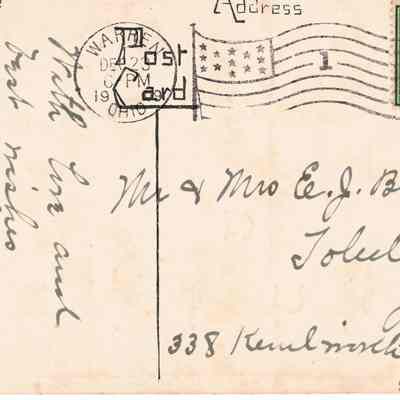 Address
Post
Card
WARREN
DEC 23
6 PM
19
OHIO
1
With love and
best wishes
Mr & Mrs E. J. B
Toled
338 Kenilworth